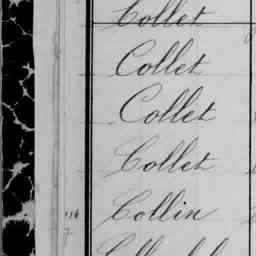 Collet
Collet
Collet
Collet
116 Collin